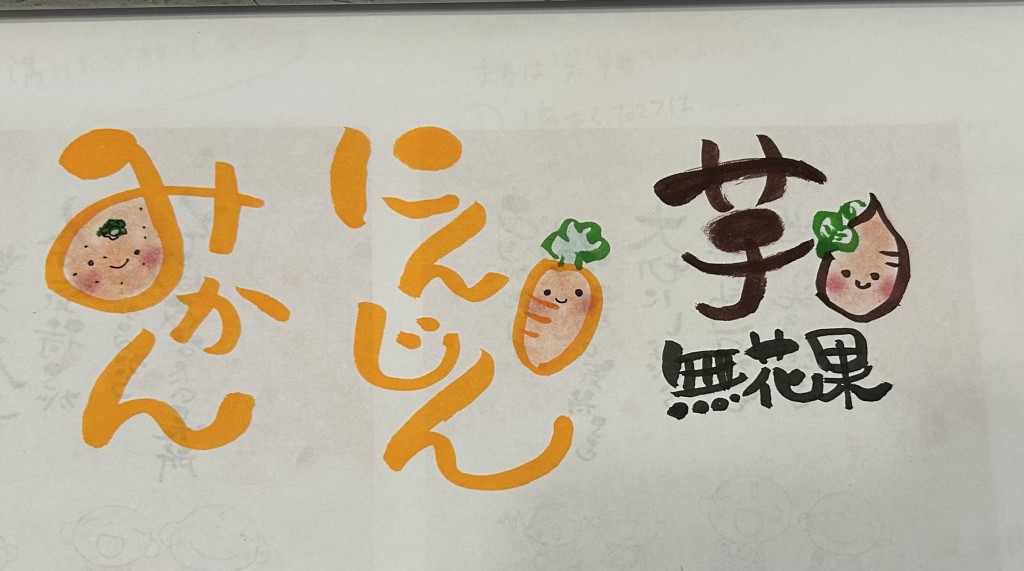 みかん
にんじん
芋
無花果